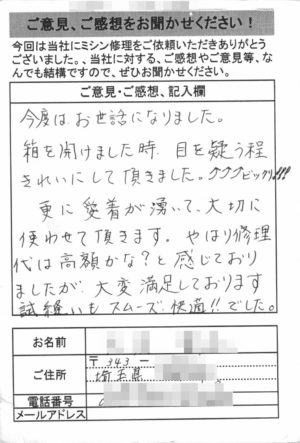 ご意見、ご感想をお聞かせください!
今回は当社にミシン修理をご依頼いただきありがとう
ございました。、当社に対する、ご感想やご意見等、な
んでも結構ですので、ぜひお聞かせください。
ご意見・ご感想、記入欄
今度は お世話になりました。
箱を開けました時、目を疑う程
きれいにして頂きました。ククク ビックリ!!!
更に 愛着が湧いて、大切に
使わせて頂きます。やはり修理
代は高額かな?と感じており
ましたが、大変満足しております
試縫いも スムーズ、快適!!でした。
お名前
ご住所
〒343-
埼玉県
電話番号
メールアドレス